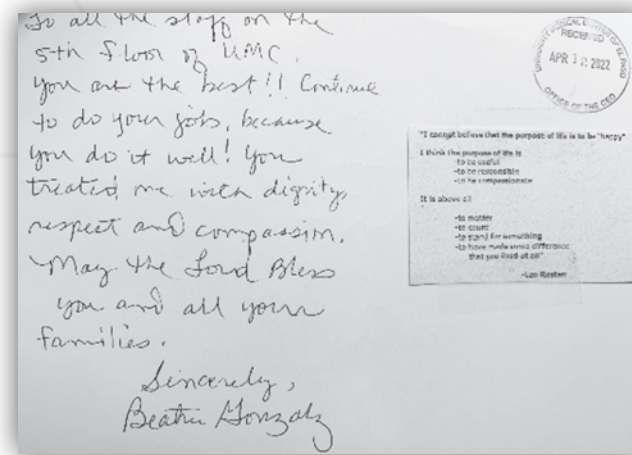 To all the staff on the
5th floor of UMC.
You are the best!! Continue
to do your jobs, because
you do it well! You
treated me with dignity,
respect and compassion.
May the Lord Bless
you and all your
families.
Sincerely,
Beatriz Gonzalz
UNIVERSITY MEDICAL CENTER OF EL PASO
RECEIVED
APR 12 2022
OFFICE OF THE CEO
"I cannot believe that the purpose of life is to be "happy"
I think the purpose of life is
-to be useful
-to be responsible
-to be compassionate
It is above all
-to matter
-to count
-to stand for something
-to have made some difference
that you lived at all"
-Leo Rosten